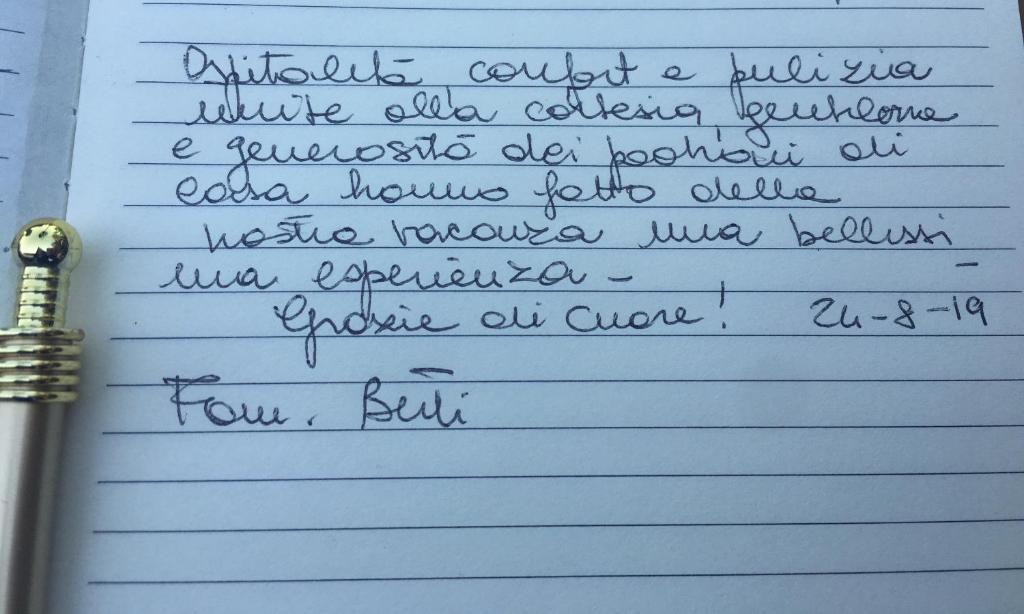 Ospitalità confort e pulizia
unite alla cortesia, gentilezza
e generosità dei padroni di
casa hanno fatto della
nostra vacanza una bellissi
ma esperienza -
Grazie di cuore! 24-8-19
Fam.